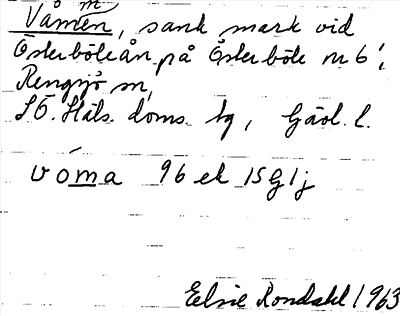 Våmen, sank mark vid
Österböleån på Österböle nr 6,
Rengsjö sn,
SÖ. Häls. doms. tg, Gävl. l.
vóma 96 ek 15G1j
Elsie Rondahl 1963